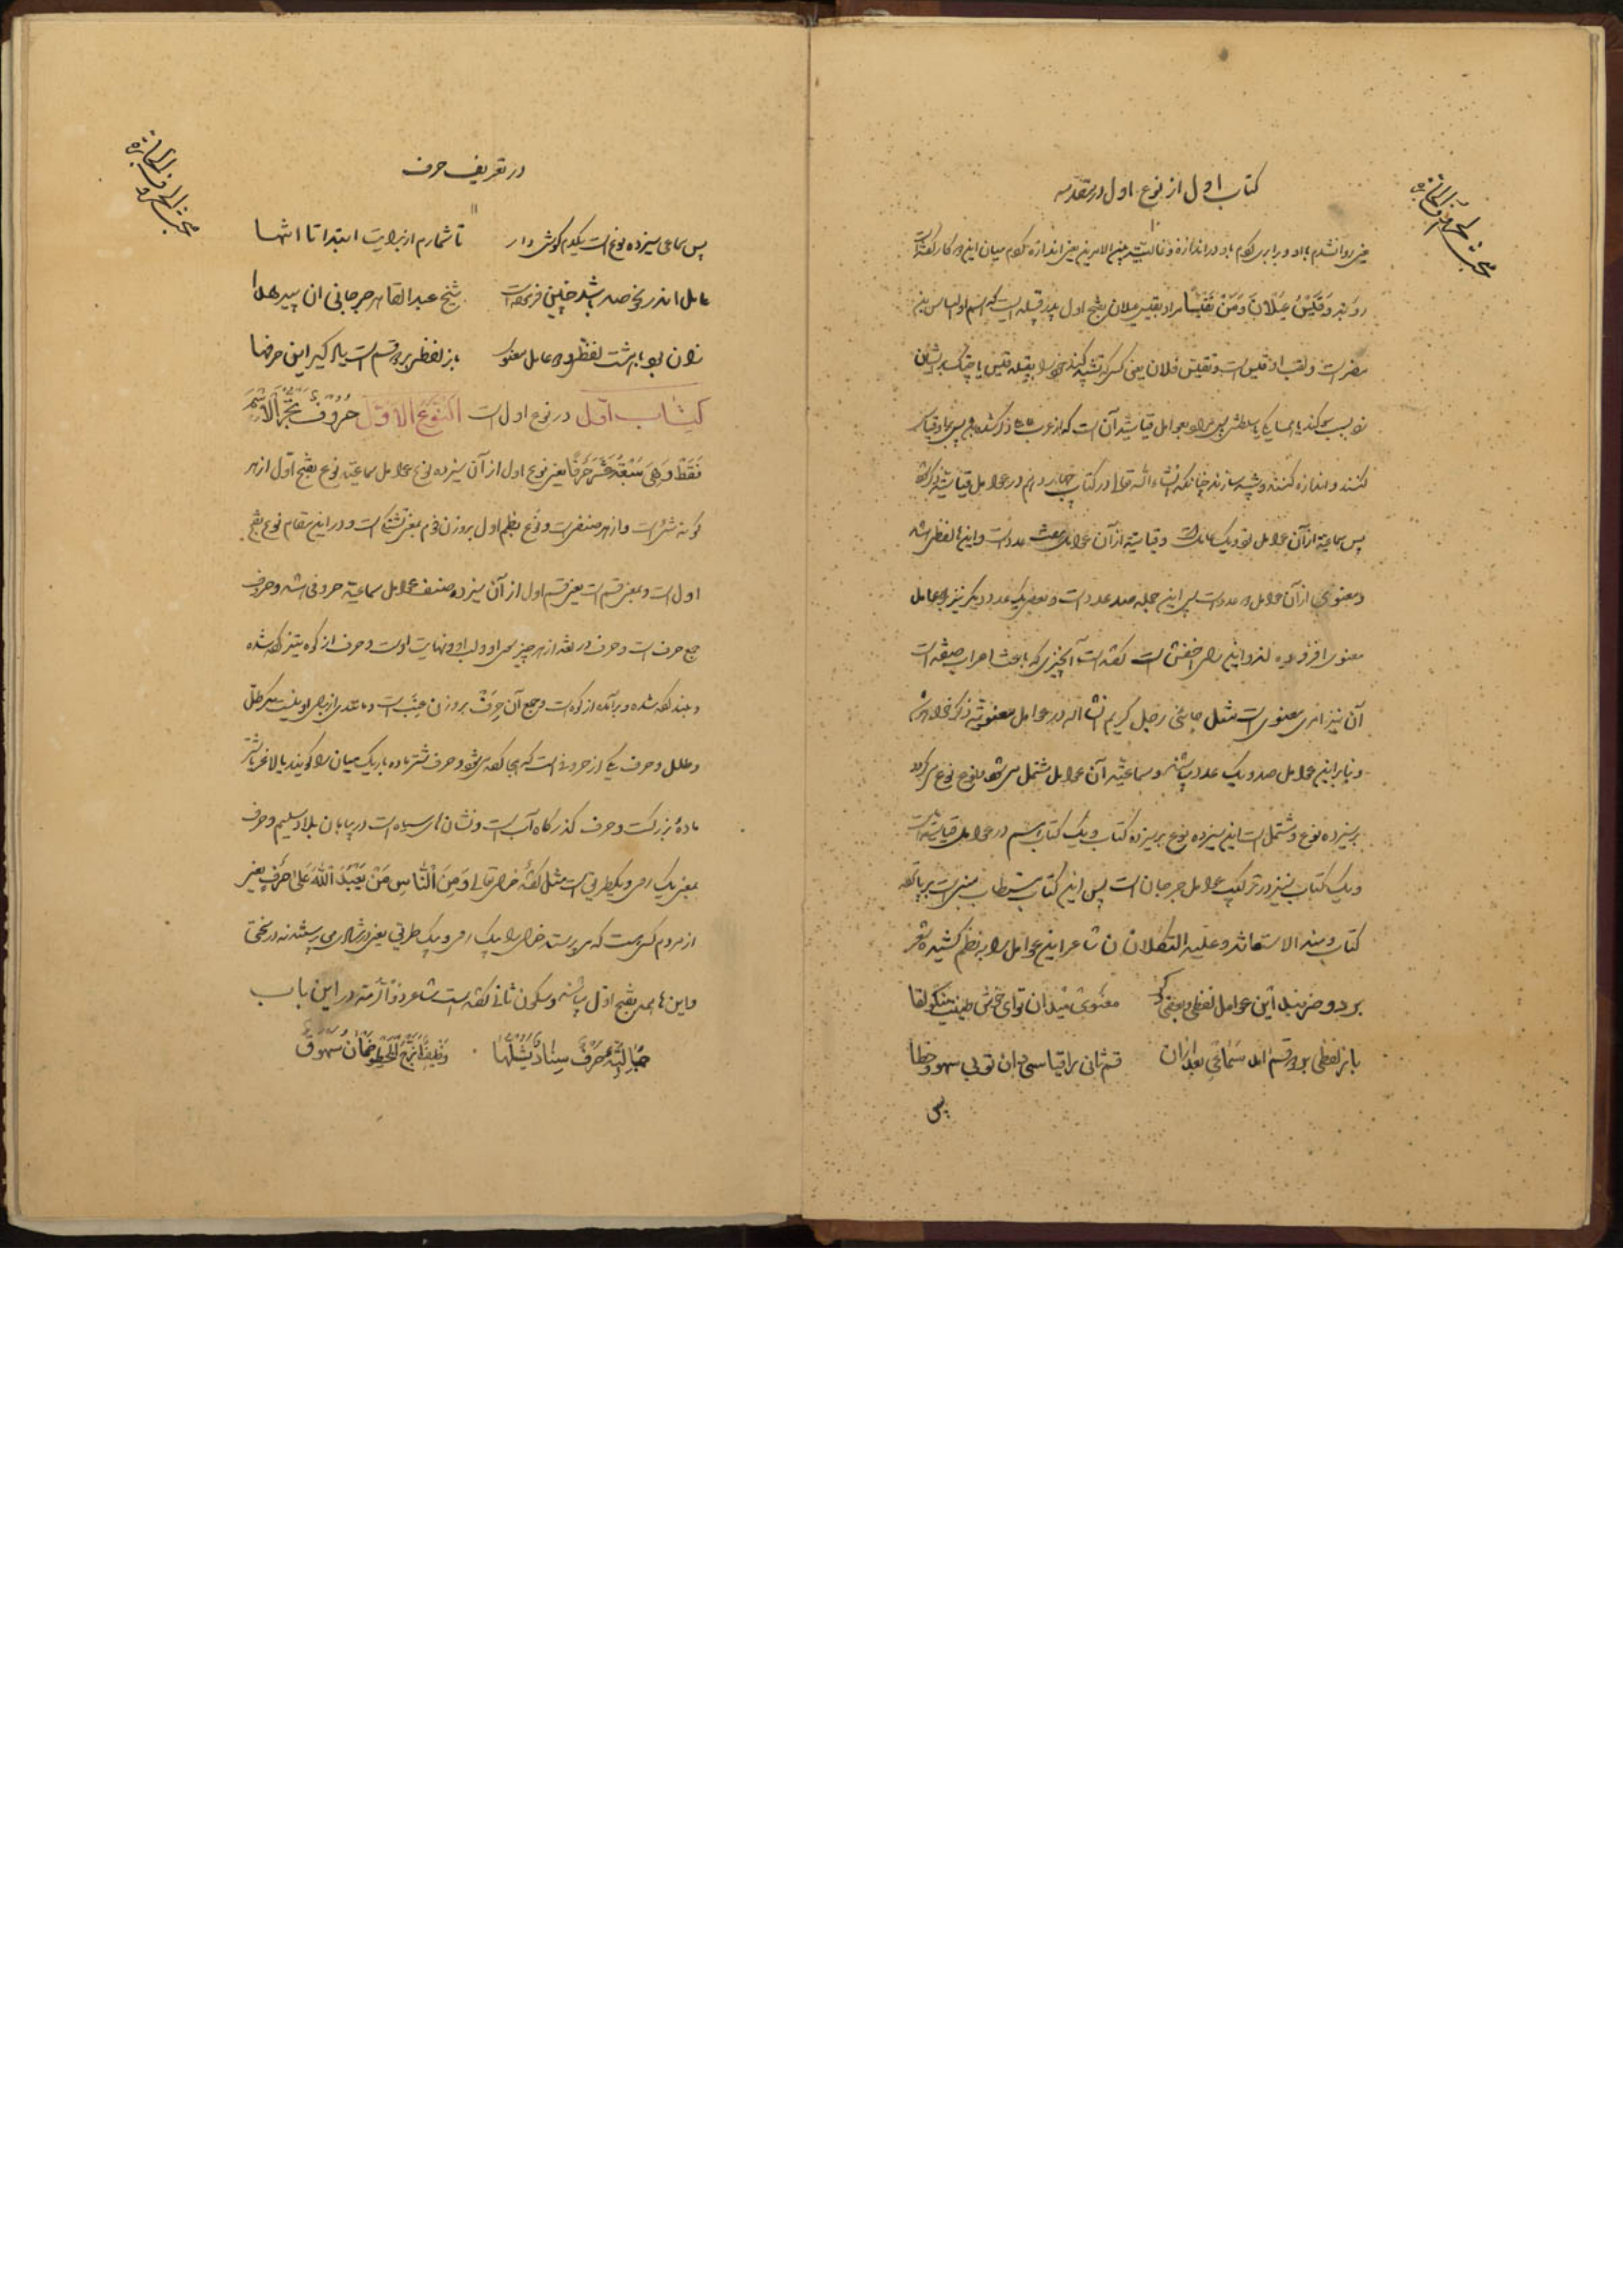 مبحث الحروف الجارة
کتاب اول از نوع اول در مقدمه
۱۰
روبة وقیس عیلان ومن تقیسا مراد بقیس عیلان بفتح اول پدر قبیله ایست که اسم او الیاس بن
مضر است و لقب او قیس است و تقیس فلان یعنی کسی که تشبه کند خود را بقبیله قیس یا چنگ
کنند و اندازه کنند و پیشه سازند چنانکه انشاء الله تعالی در کتاب چهاردهم در عوامل قیاسیه
پس سماعیه از آن عوامل نود و یک عامل است و قیاسیه از آن عوامل هفت عدد است و این‌ها لفظی باشد
و معنوی از آن عوامل دو عدد است پس این جمله صد عدد است و بعضی یک عدد دیگر نیز بر عامل
معنوی افزوده اند و این رای اخفش است گفته است آنچیزی که باعث اعراب صفة است
آن نیز امری معنوی است مثل جائنی رجل کریم انشا الله در عوامل معنویة ذکر خواهد شد
و بنابر این عوامل صد و یک عدد باشد و سماعیه آن عوامل مشتمل می شود بنوع نوع
بر سیزده نوع و مشتمل است این سیزده نوع بر سیزده کتاب و یک کتاب هم در عوامل قیاسیه است
و یک کتاب نیز در ترکیب عوامل جرجان است پس این کتاب مستطاب مبنی است بر پانزده
کتاب و منه الاستعانة و علیه التکلان شاعر این عوامل را بنظم کشیده شعر
بر دو ضربند این عوامل لفظی و معنوی معنوی میدان توای خوش طینت نیکو لقا
باز لفظی بر دو قسم آمد سماعی بعد از آن قسم ثانی را قیاسی دان تو بی سهو و خطا
پس
مبحث الحروف الجارة
در تعریف حرف
۱۱
پس سماعی سیزده نوع است یکدم گوش دار تا شمارم از برایت ابتدا تا انتها
عامل اندر نحو صد باشد چنین فرموده است شیخ عبد القاهر جرجانی آن پیر هدا
زان نود با هشت لفظی و دو عامل معنوی باز لفظی بر دو قسم است یاد گیر این حرفها
کتاب اول در نوع اول است النوع الاول حروف تجر الاسم
فقط وهی سبعة عشر حرفا یعنی نوع اول از آن سیزده نوع عوامل سماعیه نوع بفتح اول از هر
گونه شیئ است و از هر صنفی است و نوع بضم اول بروزن فوم بمعنی تشنگی است و در این مقام نوع بفتح
اول است و بمعنی قسم است یعنی قسم اول از آن سیزده صنف عوامل سماعیه حروفی باشد و حروف
جمع حرف است و حرف در لغة از هر چیز طرف او و لب او و نهایت اوست و حرف از کوه تیزی گفته شده
و بلند گفته شده و برآمده از کوه است و جمع آن حرف بروزن عنب است و ما عدای از برای او نیست مگر طل
و طلل و حرف یکی از حروفی است که هجا گفته می شود و حرف شتر ماده باریک میان را گویند یا لاغر یا شتر
ماده بزرگست و حرف گذرگاه آب است و نشان های سیاه است در بیابان بلاد سلیم و حرف
بمعنی یک رو و یکطرفی است مثل گفته خدای تعالی و من الناس من یعبد الله علی حرف یعنی
از مردم کسی هست که می پرستد خدای را یک رو و یک طرفی یعنی در شادی می پرستد نه در سختی
و این ها همه بفتح اول باشد و سکون ثانی گفته است شاعر ذوالرمة در این باب
جمالیة حرف سناد یشلها وظیف ازج الخطو ظمان سهوق